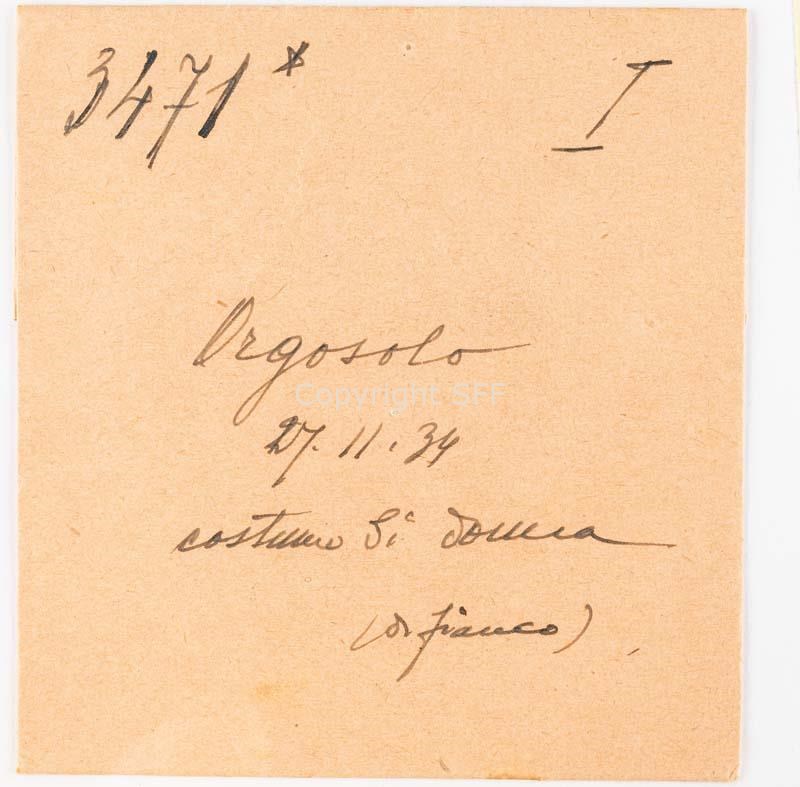 3471* I
Orgosolo
Copyright SFF
27.11.34
costume di donna
(di fianco)